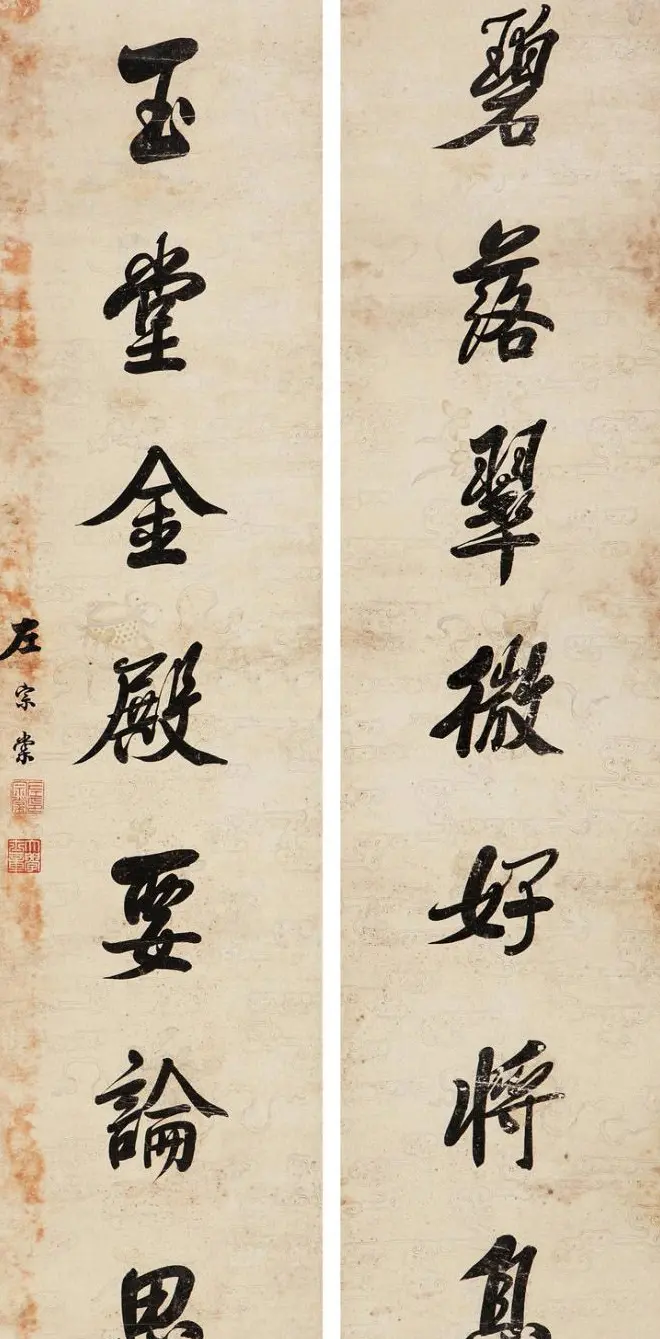 碧落翠微好將息
玉堂金殿要論思
左宗棠